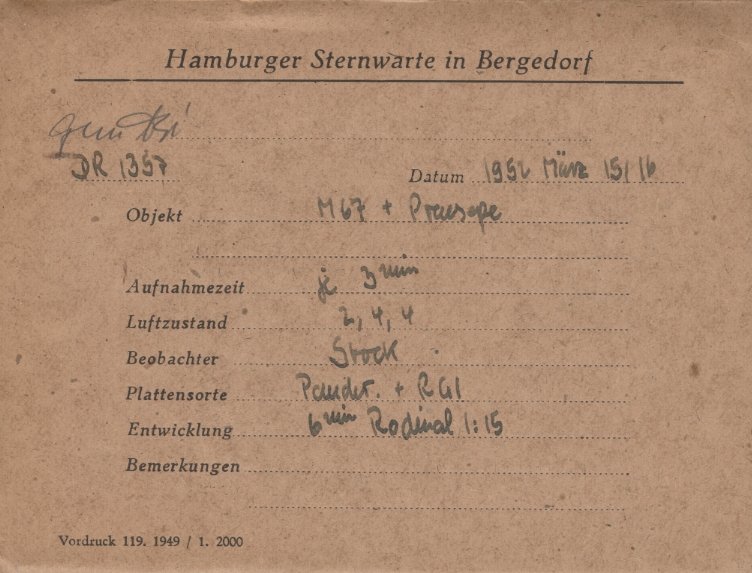 Hamburger Sternwarte in Bergedorf
DR 1357
Datum 1952 März 15/16
Objekt M67 + Praesepe
Aufnahmezeit je 3 min
Luftzustand 2, 4, 4
Beobachter Stock
Plattensorte + RG1
Entwicklung 6 min Rodinal 1:15
Bemerkungen
Vordruck 119. 1949 / 1. 2000